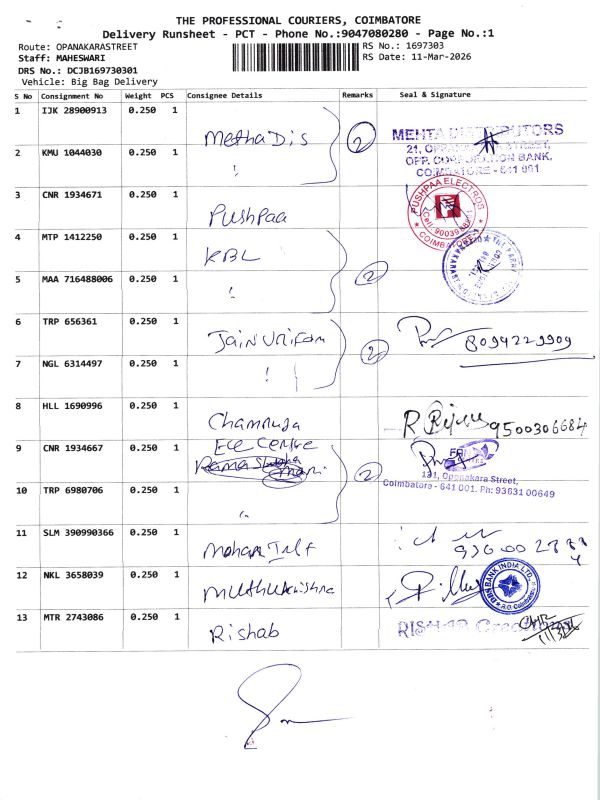 THE PROFESSIONAL COURIERS, COIMBATORE
Delivery Runsheet - PCT - Phone No.:9047080280 - Page No.:1
Route: OPANAKARASTREET
RS No.: 1697303
Staff: MAHESWARI
RS Date: 11-Mar-2026
DRS No.: DCJB169730301
Vehicle: Big Bag Delivery
S No Consignment No Weight PCS Consignee Details Remarks Seal & Signature
1 IJK 28900913 0.250 1
Metha Dis 2 MEHTA DISTRIBUTORS
2 KMU 1044030 0.250 1
OPP. CORPORATION BANK.
COIMBATORE - 641 001.
3 CNR 1934671 0.250 1
Pushpaa PUSHPAA ELECTROS
COIMBATORE-1
4 MTP 1412250 0.250 1
KBL 2
5 MAA 716488006 0.250 1
6 TRP 656361 0.250 1
Jain Uniform 2 8094229909
7 NGL 6314497 0.250 1
8 HLL 1690996 0.250 1
9500306684
9 CNR 1934667 0.250 1
Ece Centre 2
131, Oppanakara Street,
Coimbatore - 641 001. Ph: 93631 00649
10 TRP 6980706 0.250 1
11 SLM 390990366 0.250 1
Mohan
12 NKL 3658039 0.250 1
Muthukrishna BANK INDIA LTD.
13 MTR 2743086 0.250 1
Rishab RISHAB